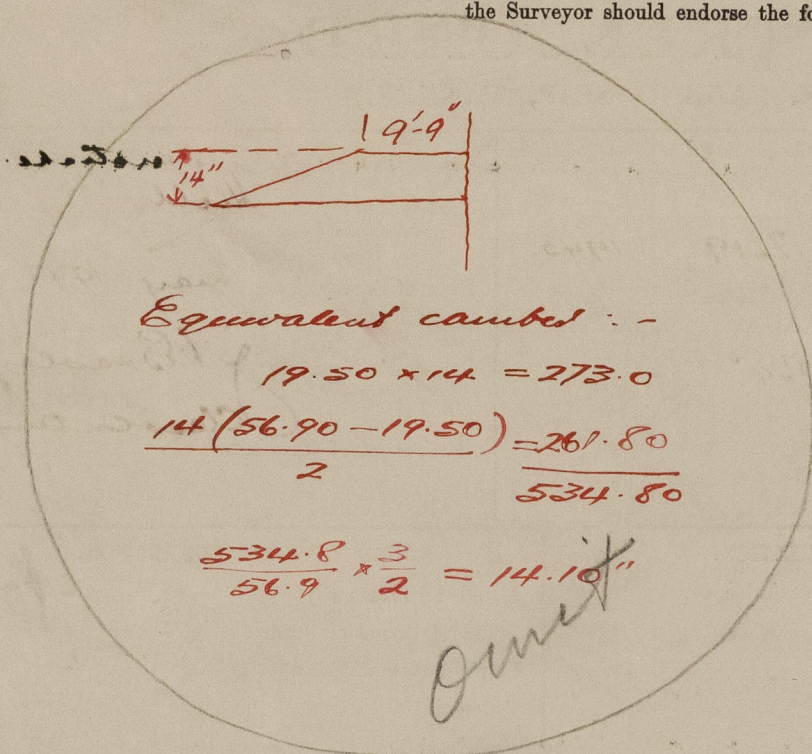 the Surveyor should endorse the fo
9'-9"
14"
Equivalent camber : -
19.50 × 14 = 273.0
14 (56.90 - 19.50) / 2 = 261.80
534.80
534.8 / 56.9 × 3 / 2 = 14.10"
Omit